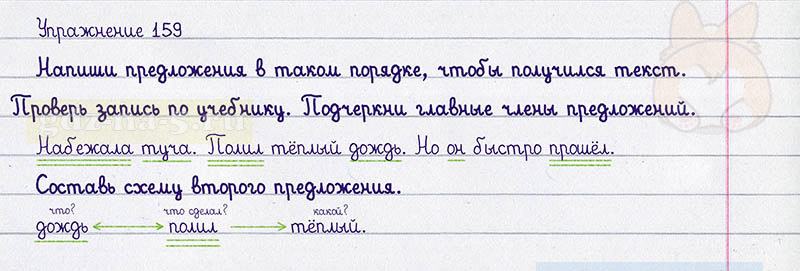 Упражнение 159
Напиши предложения в таком порядке, чтобы получился текст.
Проверь запись по учебнику. Подчеркни главные члены предложений.
Набежала туча. Полил тёплый дождь. Но он быстро прошёл.
Составь схему второго предложения.
что? что сделал? какой?
дождь полил тёплый.